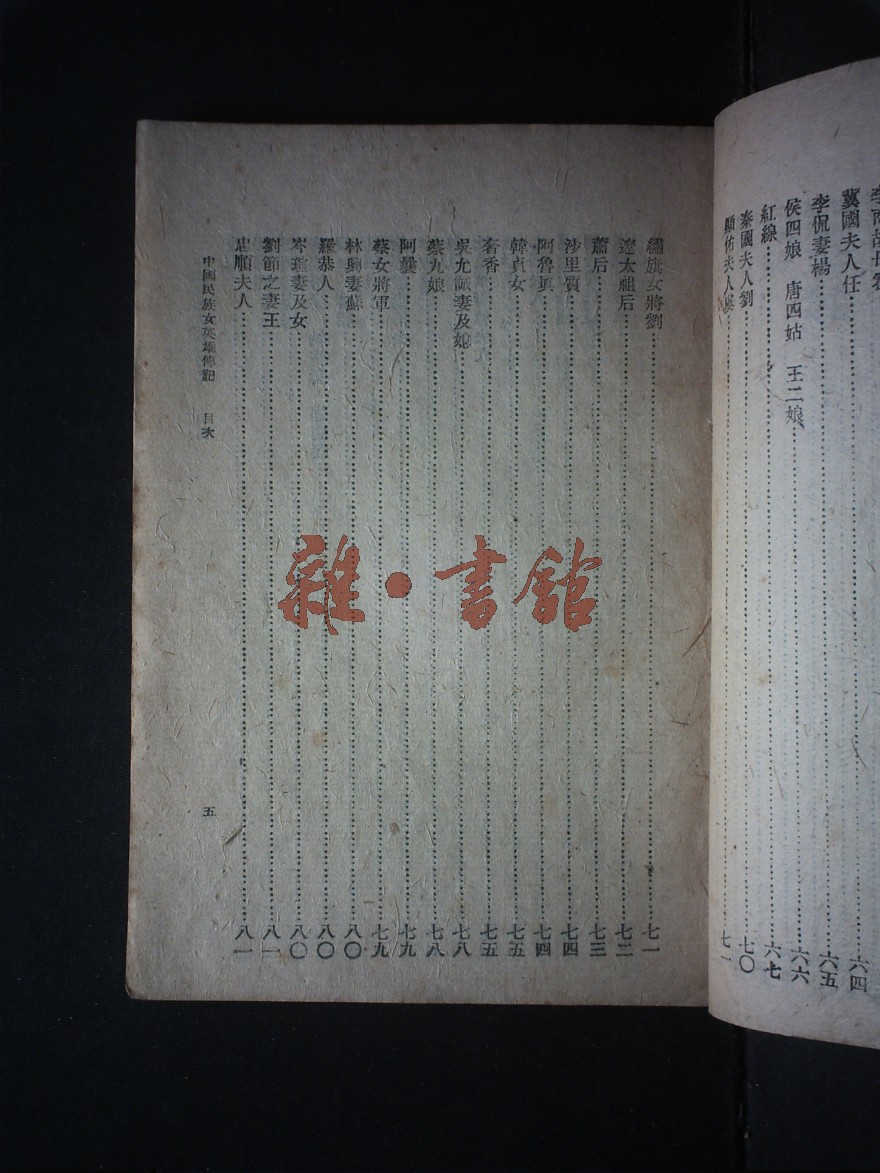 冀國夫人任……六四
李侃妻楊……六五
侯四娘　唐四姑　王二娘……六六
紅線……六七
秦國夫人劉……七〇
顯佑夫人……七一
繡旗女將劉……七一
遼太祖后……七二
蕭后……七三
沙里質……七四
阿魯真……七四
韓貞女……七五
奢香……七五
吳允誠妻及媳……七八
蔡九娘……七八
阿曩……七九
蔡女將軍……七九
林興妻蘇……八〇
羅恭人……八〇
岑瑄妻及女……八〇
劉節之妻王……八一
忠順夫人……八一
中國民族女英雄傳記　目次　五
雜·書館